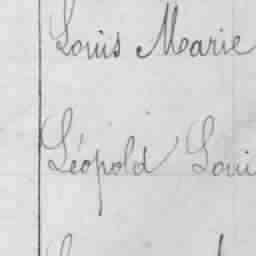 Louis Marie
Léopold Loui